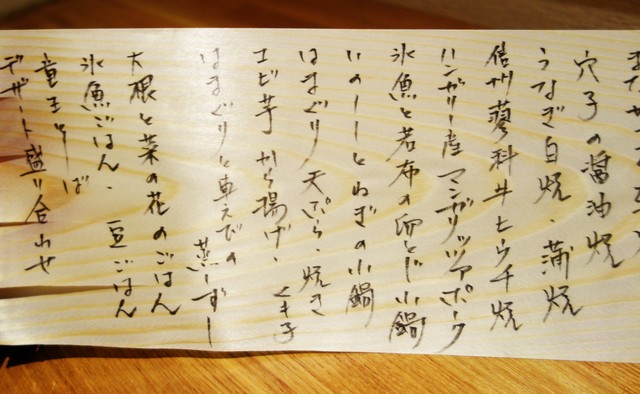 穴子の醤油焼
うなぎ白焼、蒲焼
信州蓼科牛ヒウチ焼
ハンガリー産マンガリッツァポーク
氷魚と若布の卵とじ小鍋
いのししとねぎの小鍋
はまぐり天ぷら、焼き
エビ芋から揚げ、くき子
はまぐりと車えびの蒸しずし
大根と菜の花のごはん
氷魚ごはん、豆ごはん
竜王そば
デザート盛り合わせ